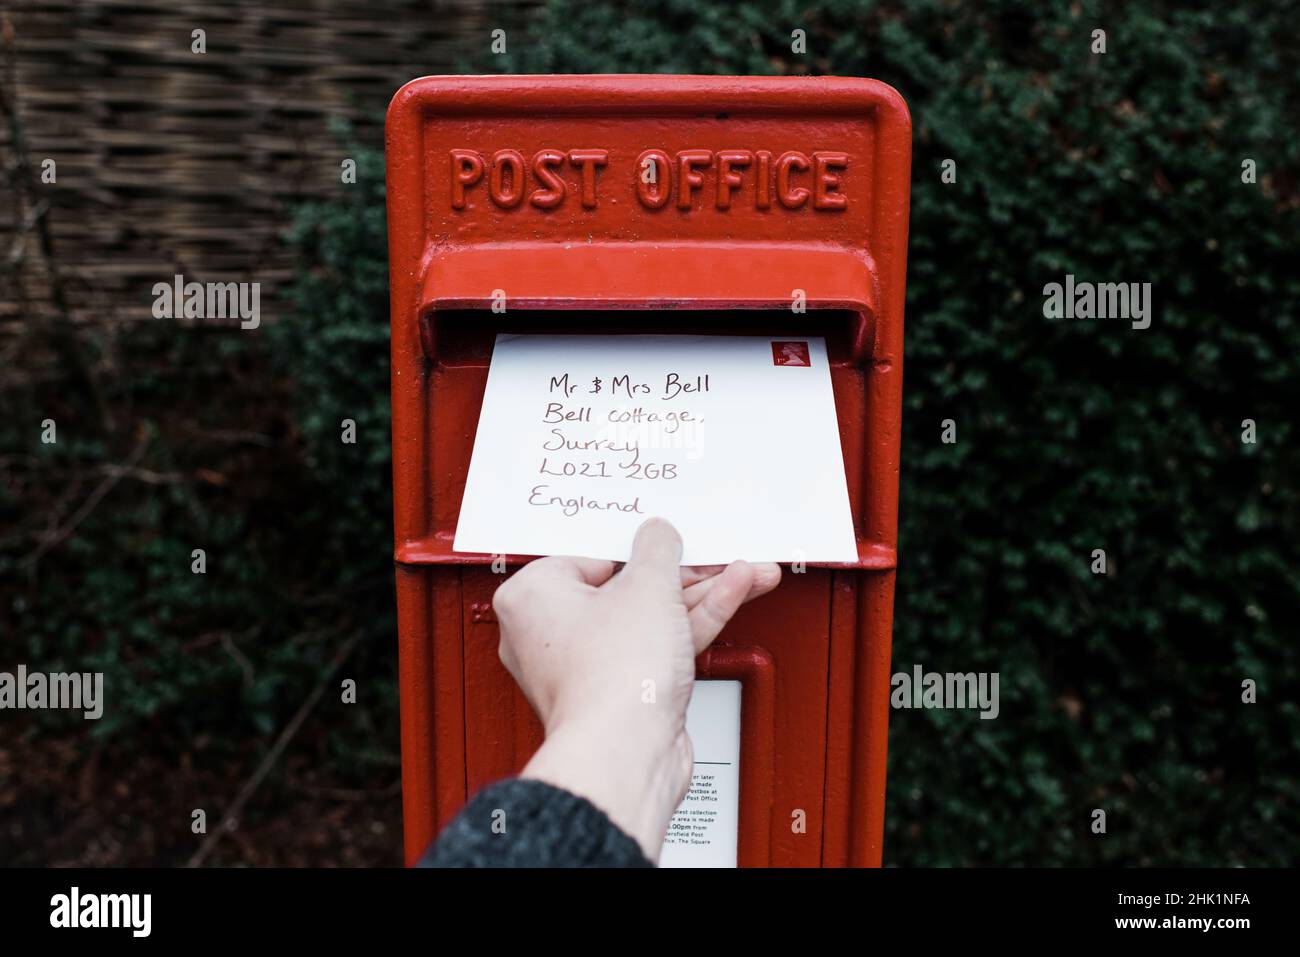 POST OFFICE
Mr & Mrs Bell
Bell cottage,
Surrey
LO21 2GB
England
or later
is made
Postbox at
Post Office
latest collection
area is made
.00pm from
ersfield Post
ice, The Square
alamy
alamy
alamy
alamy
alamy
alamy
Image ID: 2HK1NFA
www.alamy.com